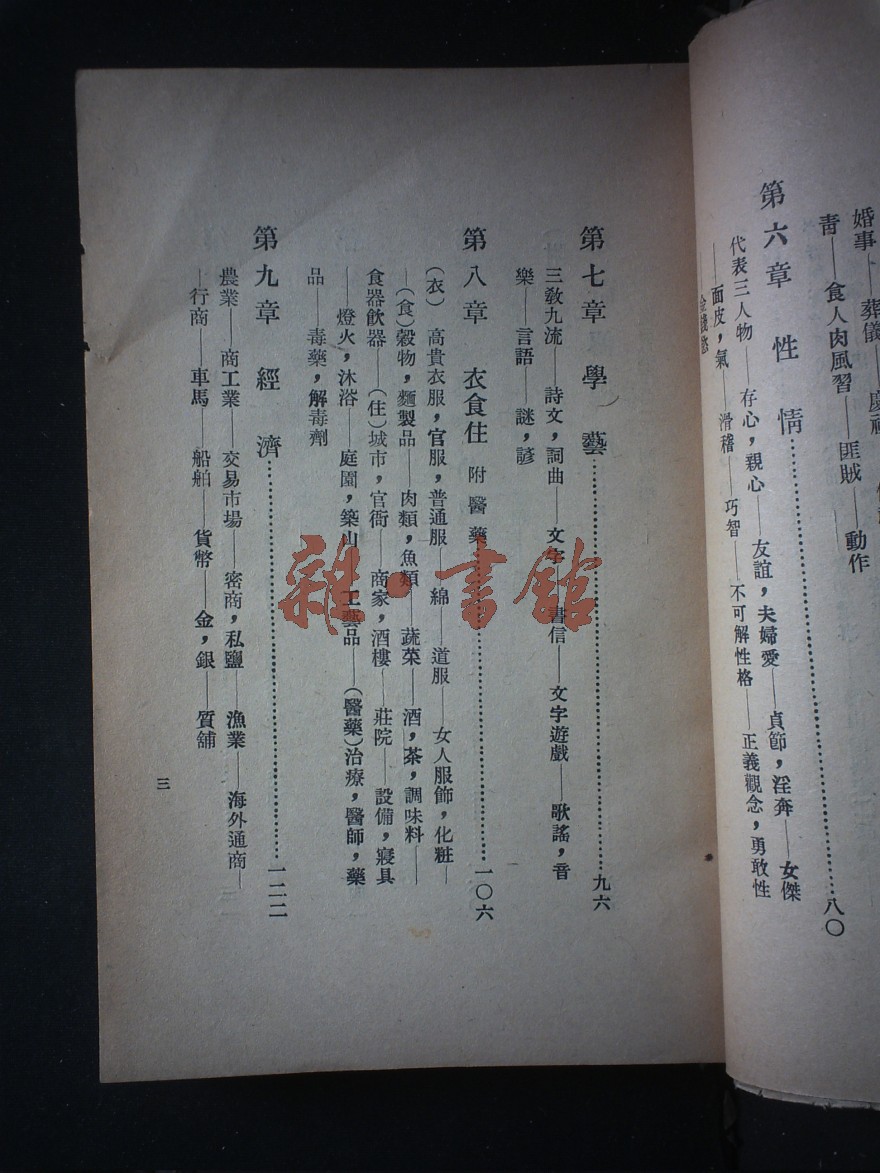 婚事——葬儀——慶祝
——食人肉風習——匪賊——動作
第六章 性情……八〇
代表三人物——存心，親心——友誼，夫婦愛——貞節，淫奔——女傑
——面皮，氣——滑稽——巧智——不可解性格——正義觀念，勇敢性
第七章 學藝……九六
三教九流——詩文，詞曲——文字——書信——文字遊戲——歌謠，音
樂——言語——謎，諺
第八章 衣食住 附醫藥……一〇六
（衣）高貴衣服，官服，普通服——綿——道服——女人服飾，化粧—
—（食）穀物，麵製品——肉類，魚類——蔬菜——酒，茶，調味料——
食器飲器——（住）城市，官衙——商家，酒樓——莊院——設備，寢具
——燈火，沐浴——庭園，築山——工藝品——（醫藥）治療，醫師，藥
品——毒藥，解毒劑
第九章 經濟……一二二
農業——商工業——交易市場——密商，私鹽——漁業——海外通商—
—行商——車馬——船舶——貨幣——金，銀——質舖
三
雜·書館